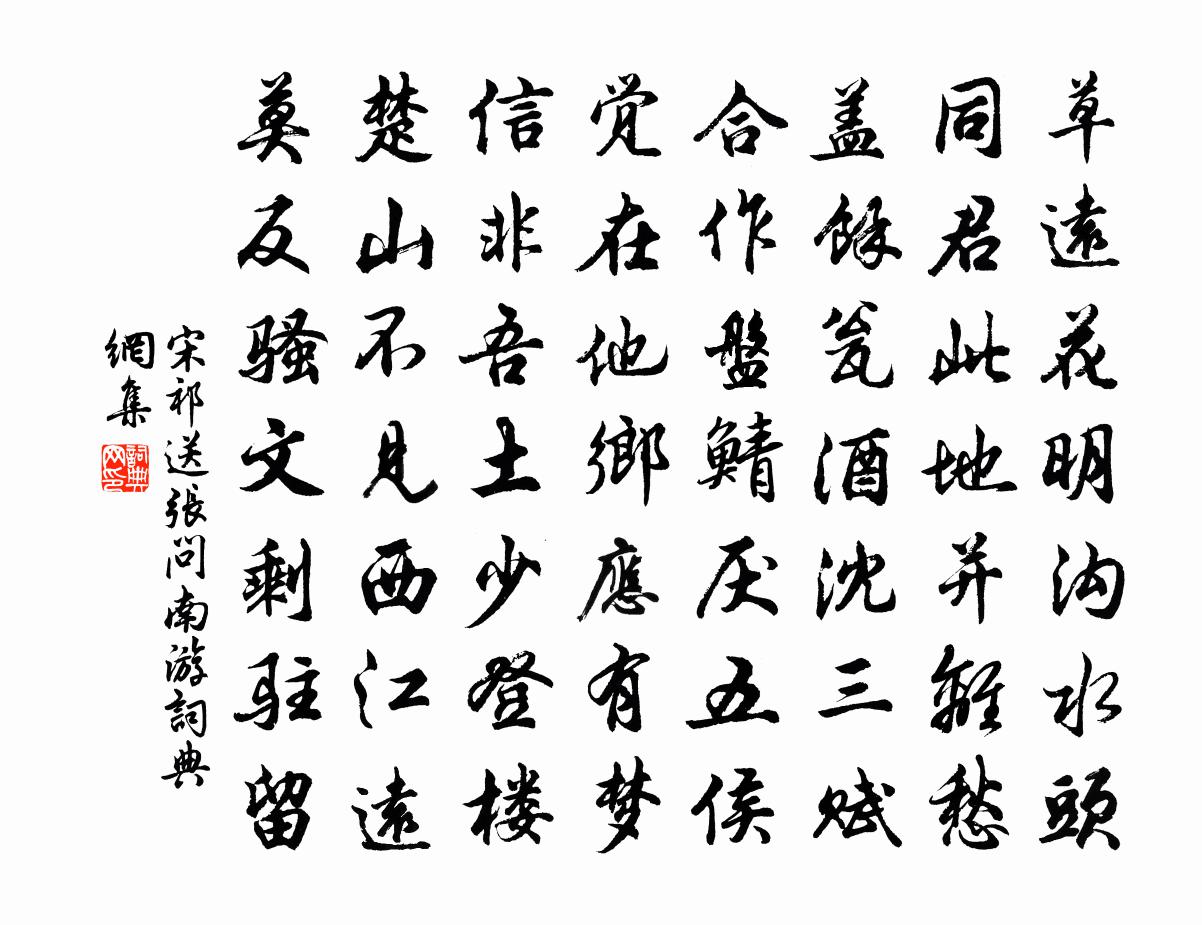 草遠花明沟水頭
同君此地并離愁
盖餘瓮酒沈三赋
合作盤鯖厌五侯
觉在他鄉應有梦
信非吾土少登楼
楚山不見西江遠
莫反骚文剩驻留
宋祁送張問南游詞典
網集
詞典网印